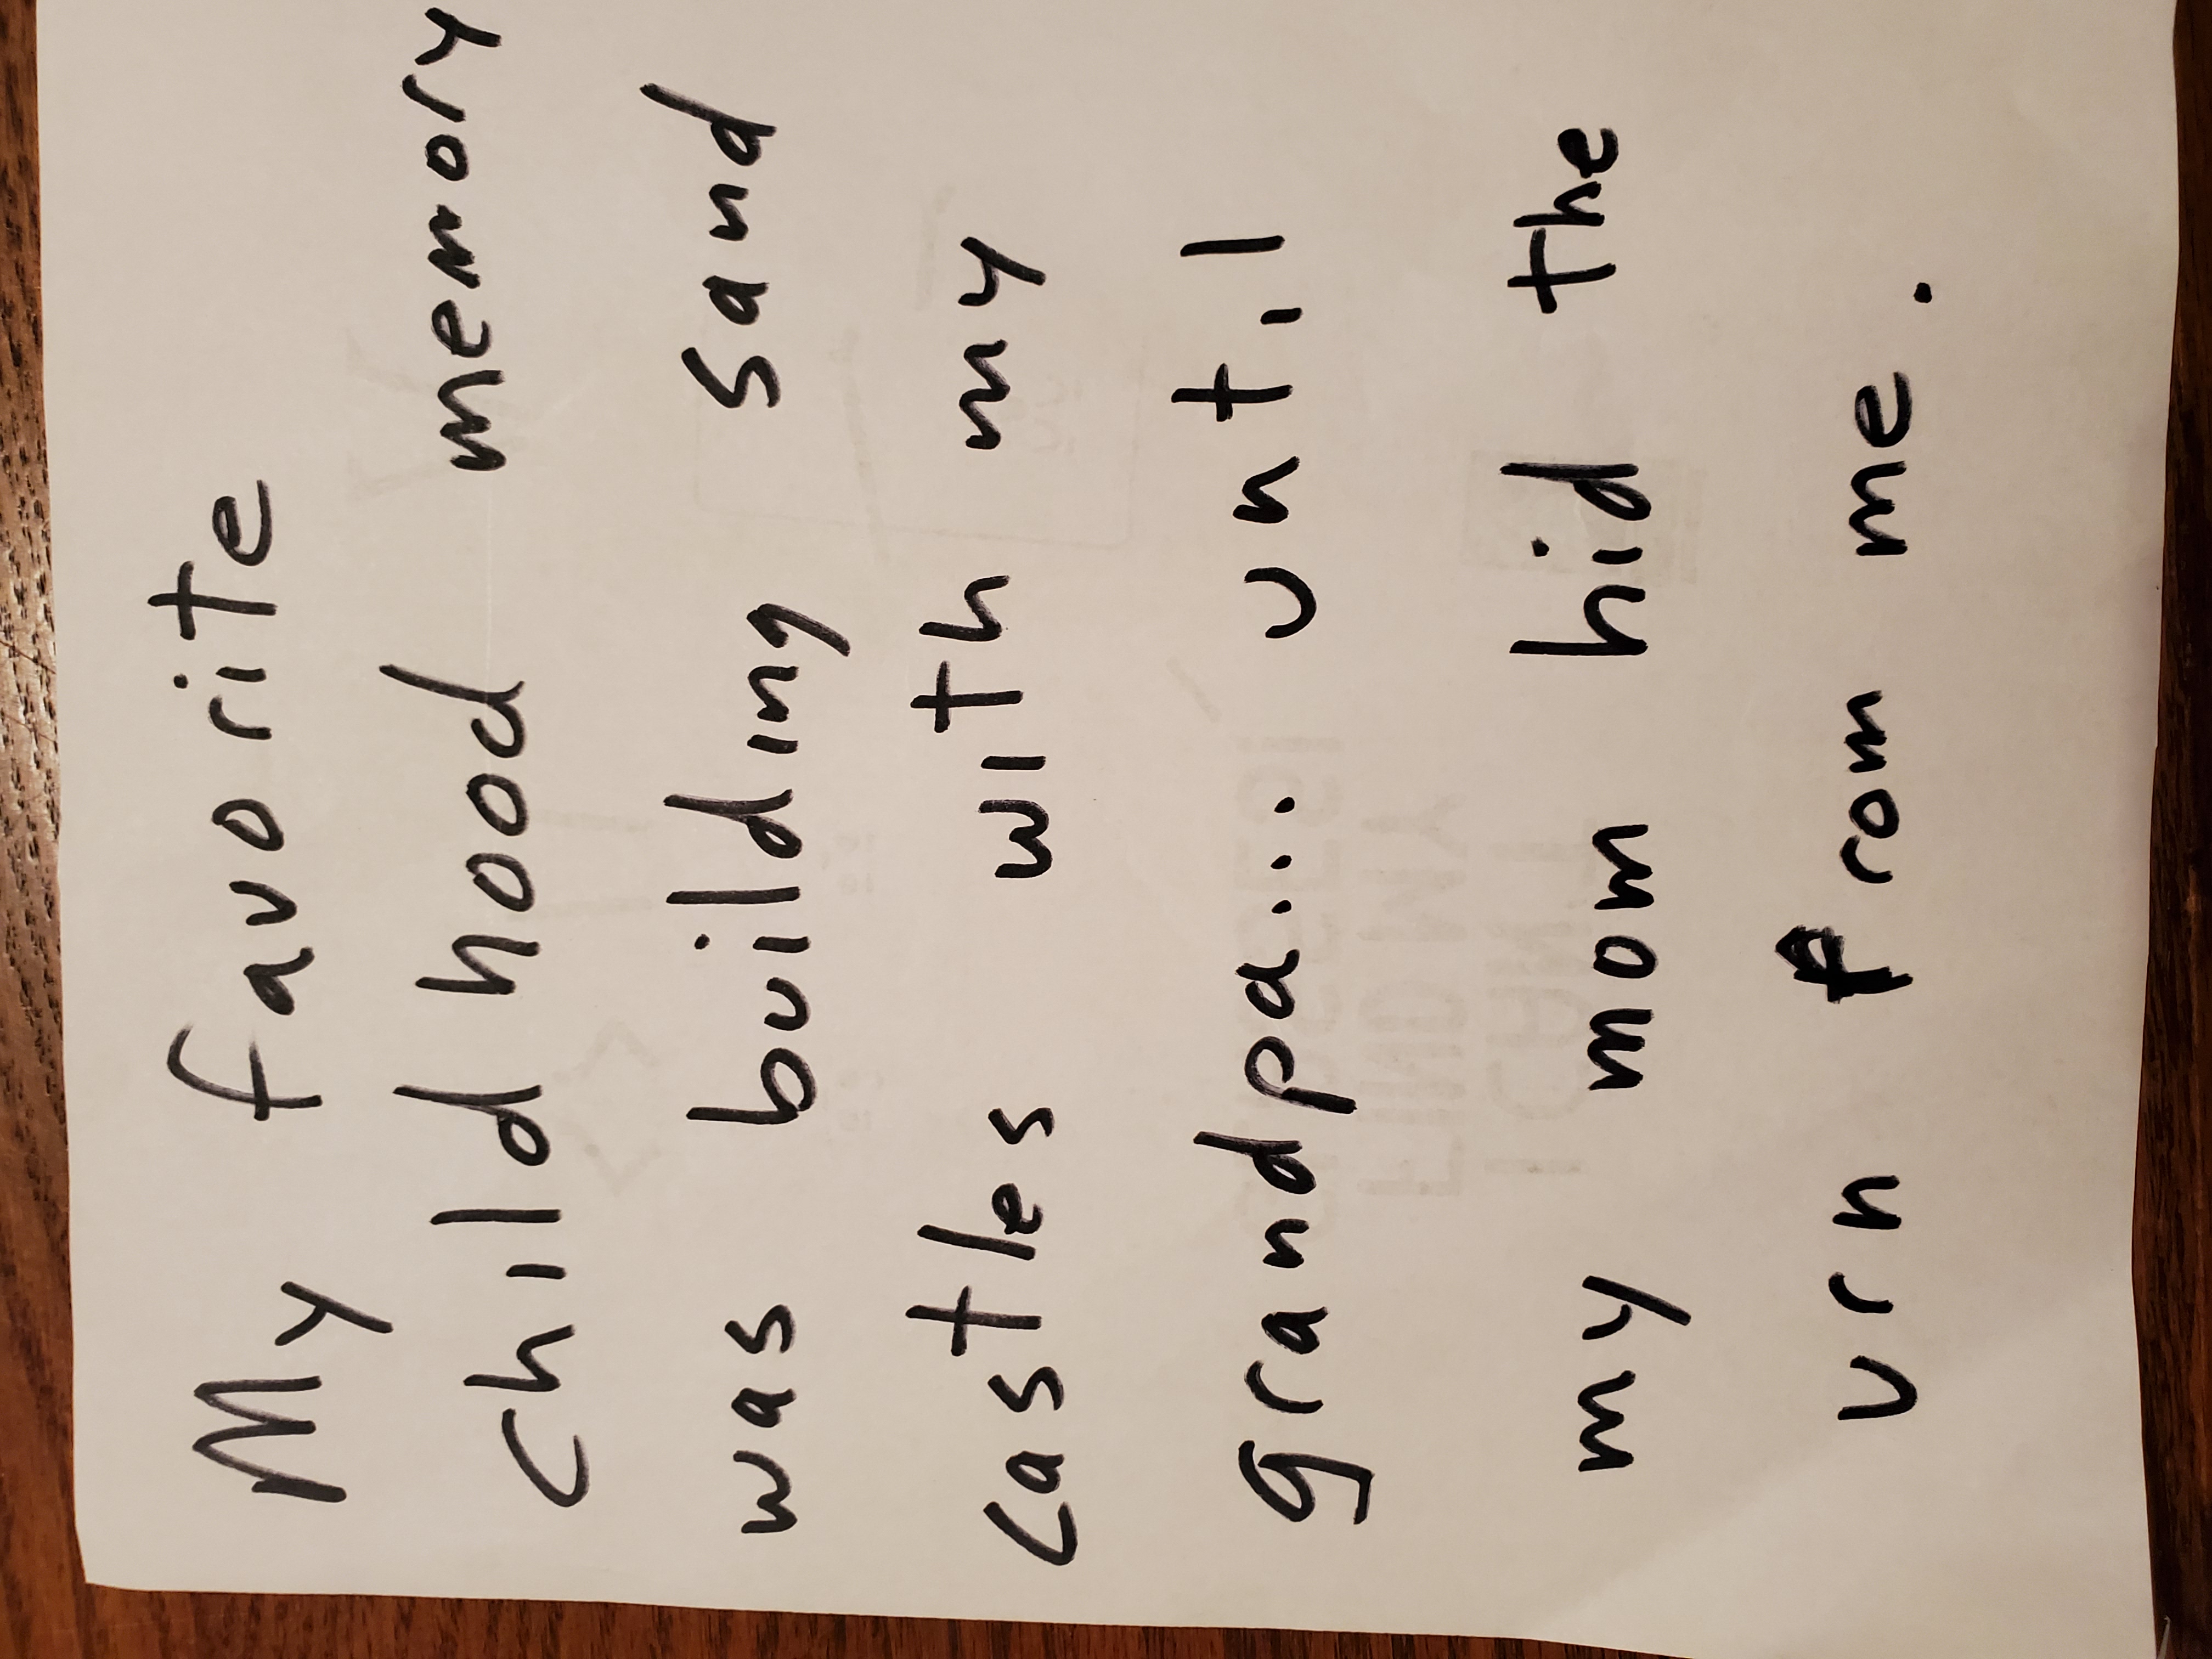 My favorite
childhood memory
was building sand
castles with my
grandpa... until
my mom hid the
urn from me.